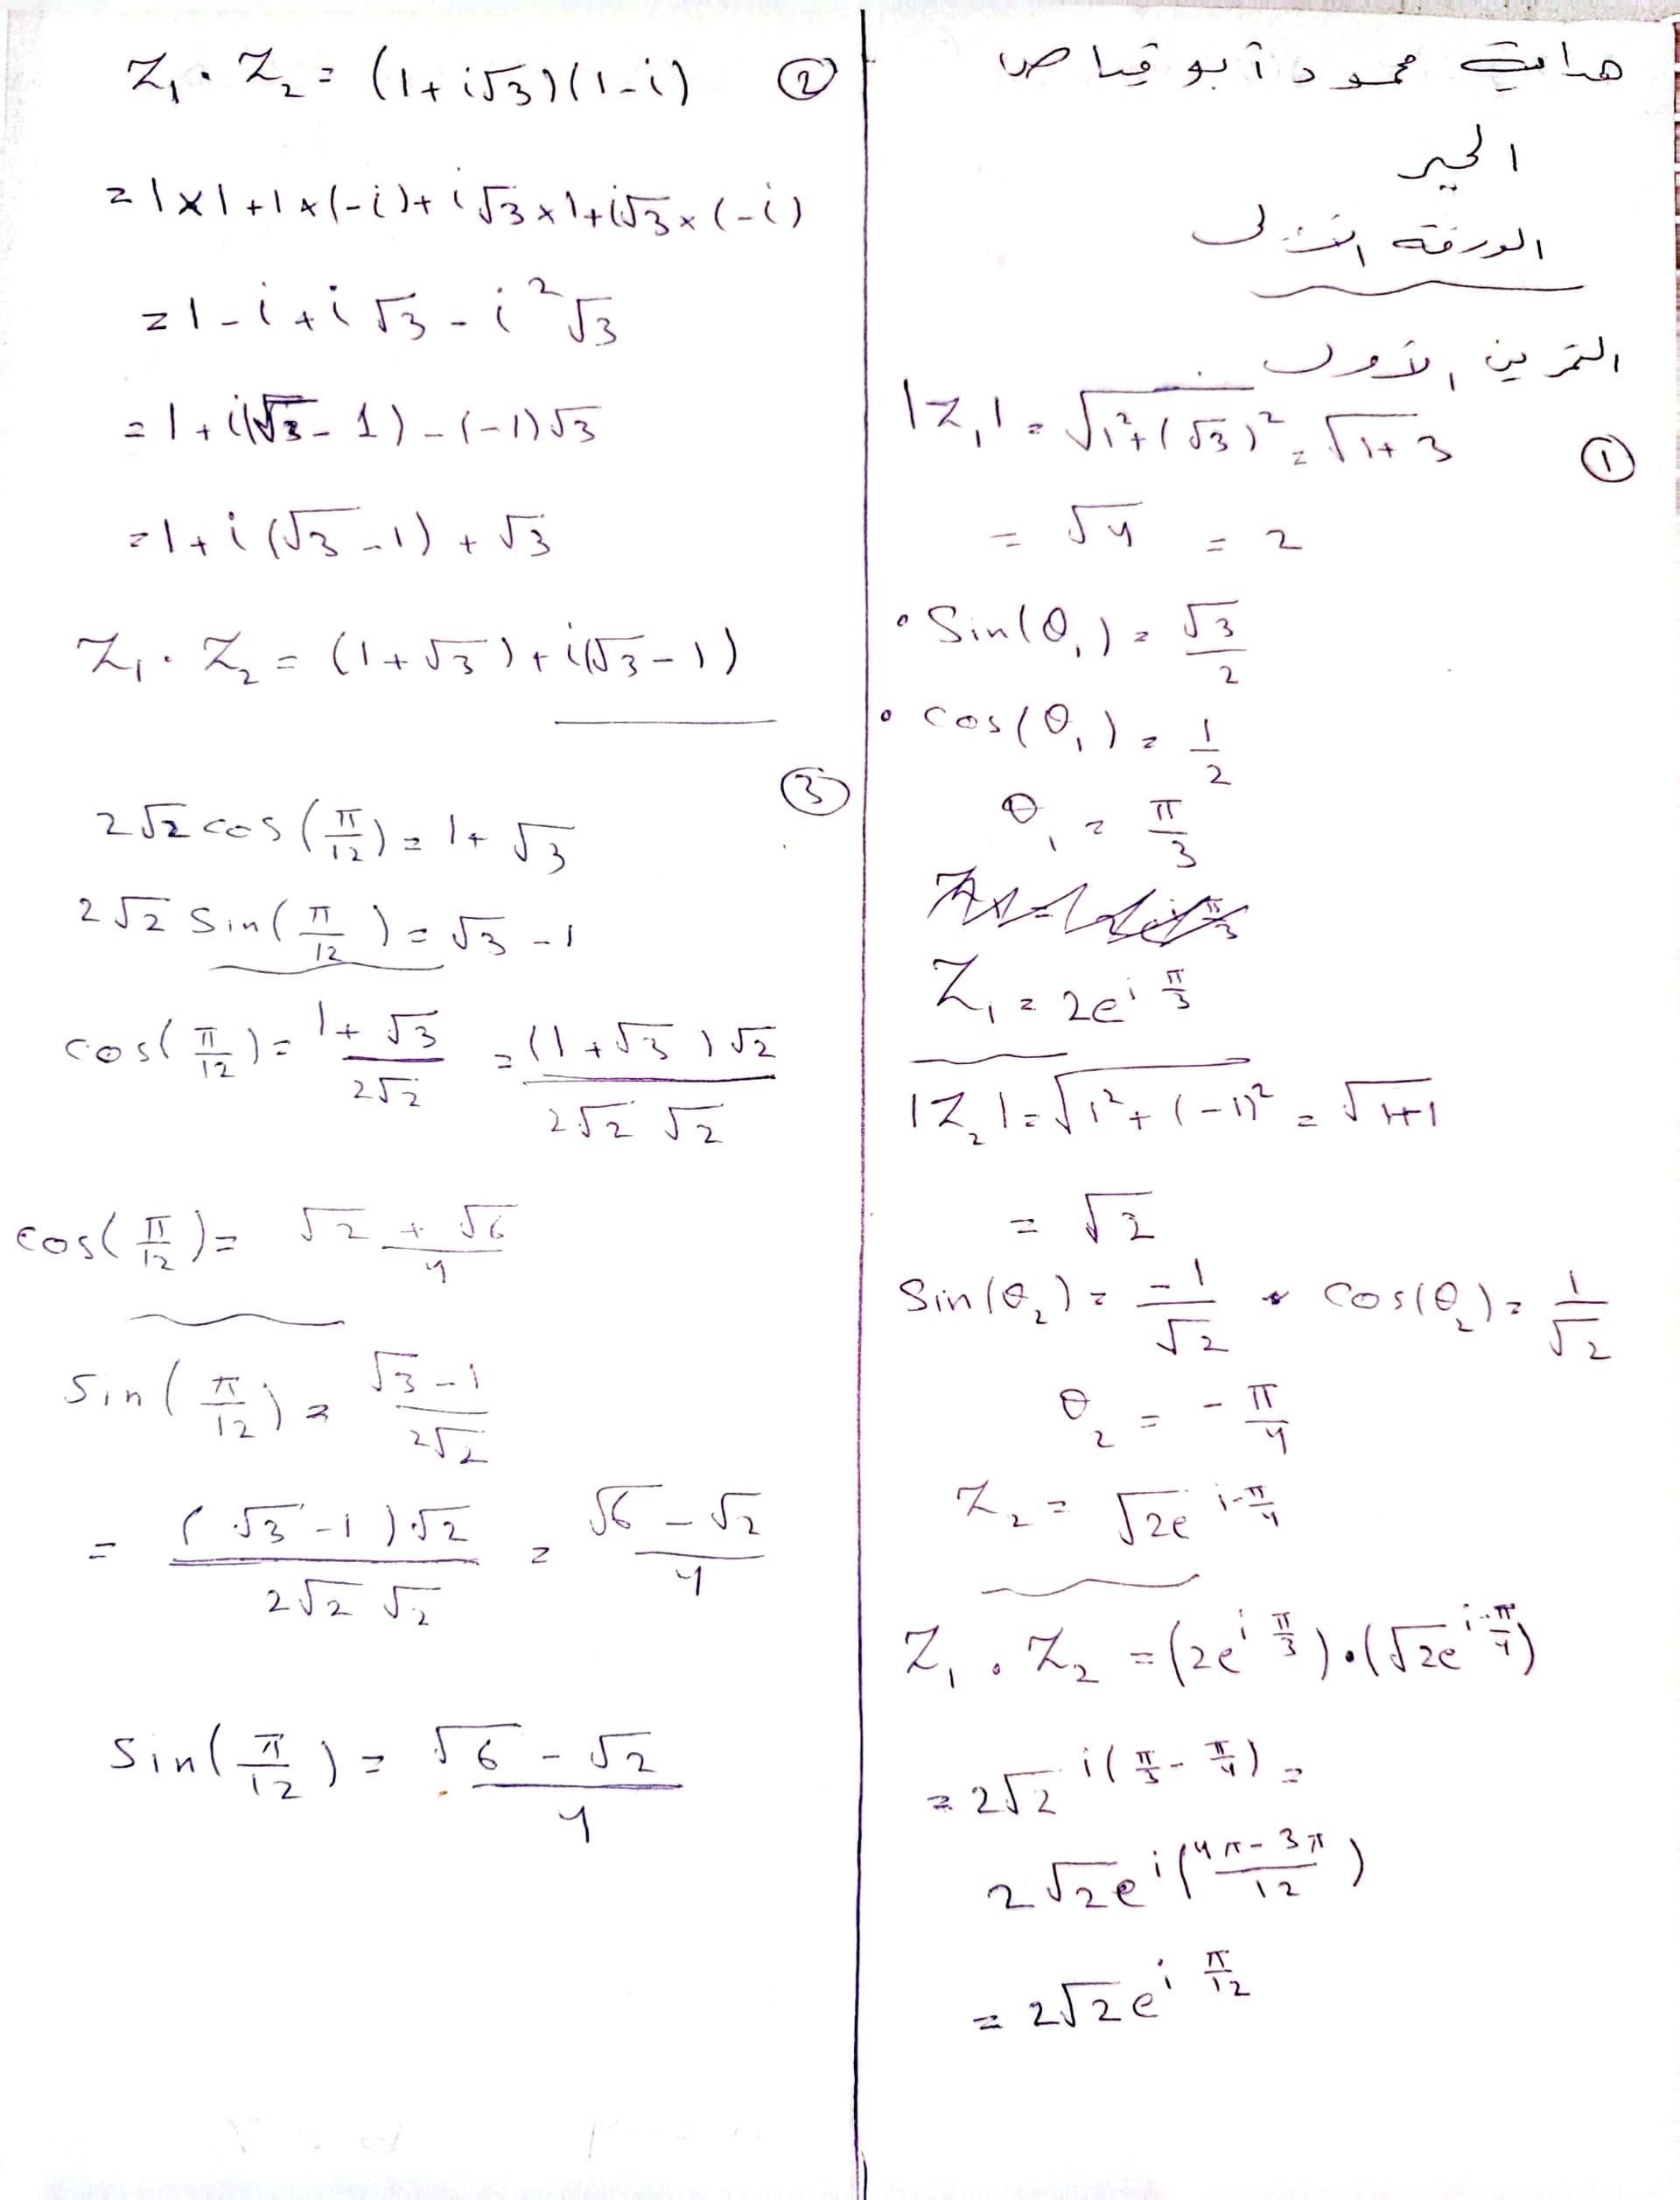 هداية محمود أبو قياص
الجبر
الورقة الأولى
التمرين الأول
①
|Z₁| = √(1² + (√3)²) = √(1+3)
= √4 = 2
• Sin(θ₁) = √3/2
• cos(θ₁) = 1/2
θ₁ = π/3
Z₁ = 2e^(i π/3)
|Z₂| = √(1² + (-1)²) = √(1+1)
= √2
Sin(θ₂) = -1/√2 • cos(θ₂) = 1/√2
θ₂ = -π/4
Z₂ = √2e^(i-π/4)
Z₁ . Z₂ = (2e^(i π/3)).(√2e^(i-π/4))
= 2√2^(i(π/3 - π/4)) =
2√2e^(i((4π-3π)/12))
= 2√2e^(i π/12)
Z₁ . Z₂ = (1+i√3)(1-i) ②
= 1×1+1×(-i)+i√3×1+i√3×(-i)
= 1-i+i√3-i²√3
= 1+i(√3-1)-(-1)√3
= 1+i(√3-1)+√3
Z₁ . Z₂ = (1+√3)+i(√3-1)
③
2√2 cos(π/12) = 1+√3
2√2 Sin(π/12) = √3-1
cos(π/12) = (1+√3)/(2√2) = ((1+√3)√2)/(2√2 √2)
cos(π/12) = (√2+√6)/4
Sin(π/12) = (√3-1)/(2√2)
= ((√3-1)√2)/(2√2 √2) = (√6-√2)/4
Sin(π/12) = (√6-√2)/4